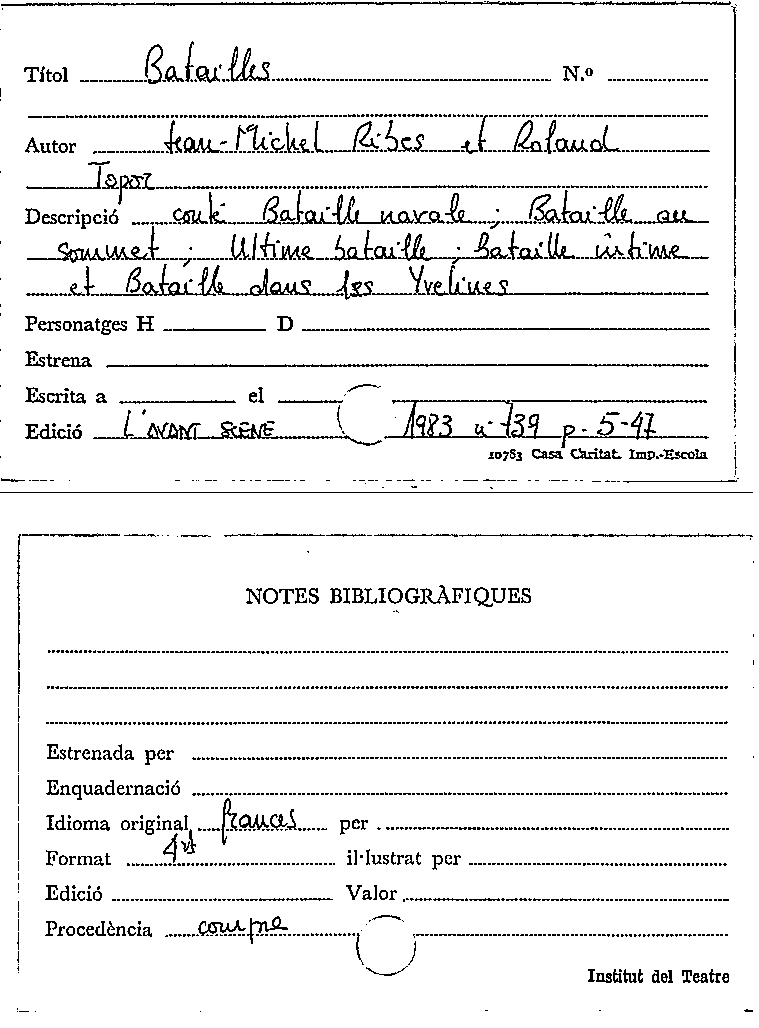 Títol Batailles N.º
Autor Jean-Michel Ribes et Roland
Topor
Descripció conté Bataille navale ; Bataille au
sommet ; Ultime bataille ; Bataille intime
et Bataille dans les Yvelines
Personatges H D
Estrena
Escrita a el
Edició L'AVANT SCENE 1983 nº 739 p. 5-47
10783 Casa Caritat. Imp.-Escola
NOTES BIBLIOGRÀFIQUES
Estrenada per
Enquadernació
Idioma original frances per
Format 4rt il·lustrat per
Edició Valor
Procedència compra
Institut del Teatre